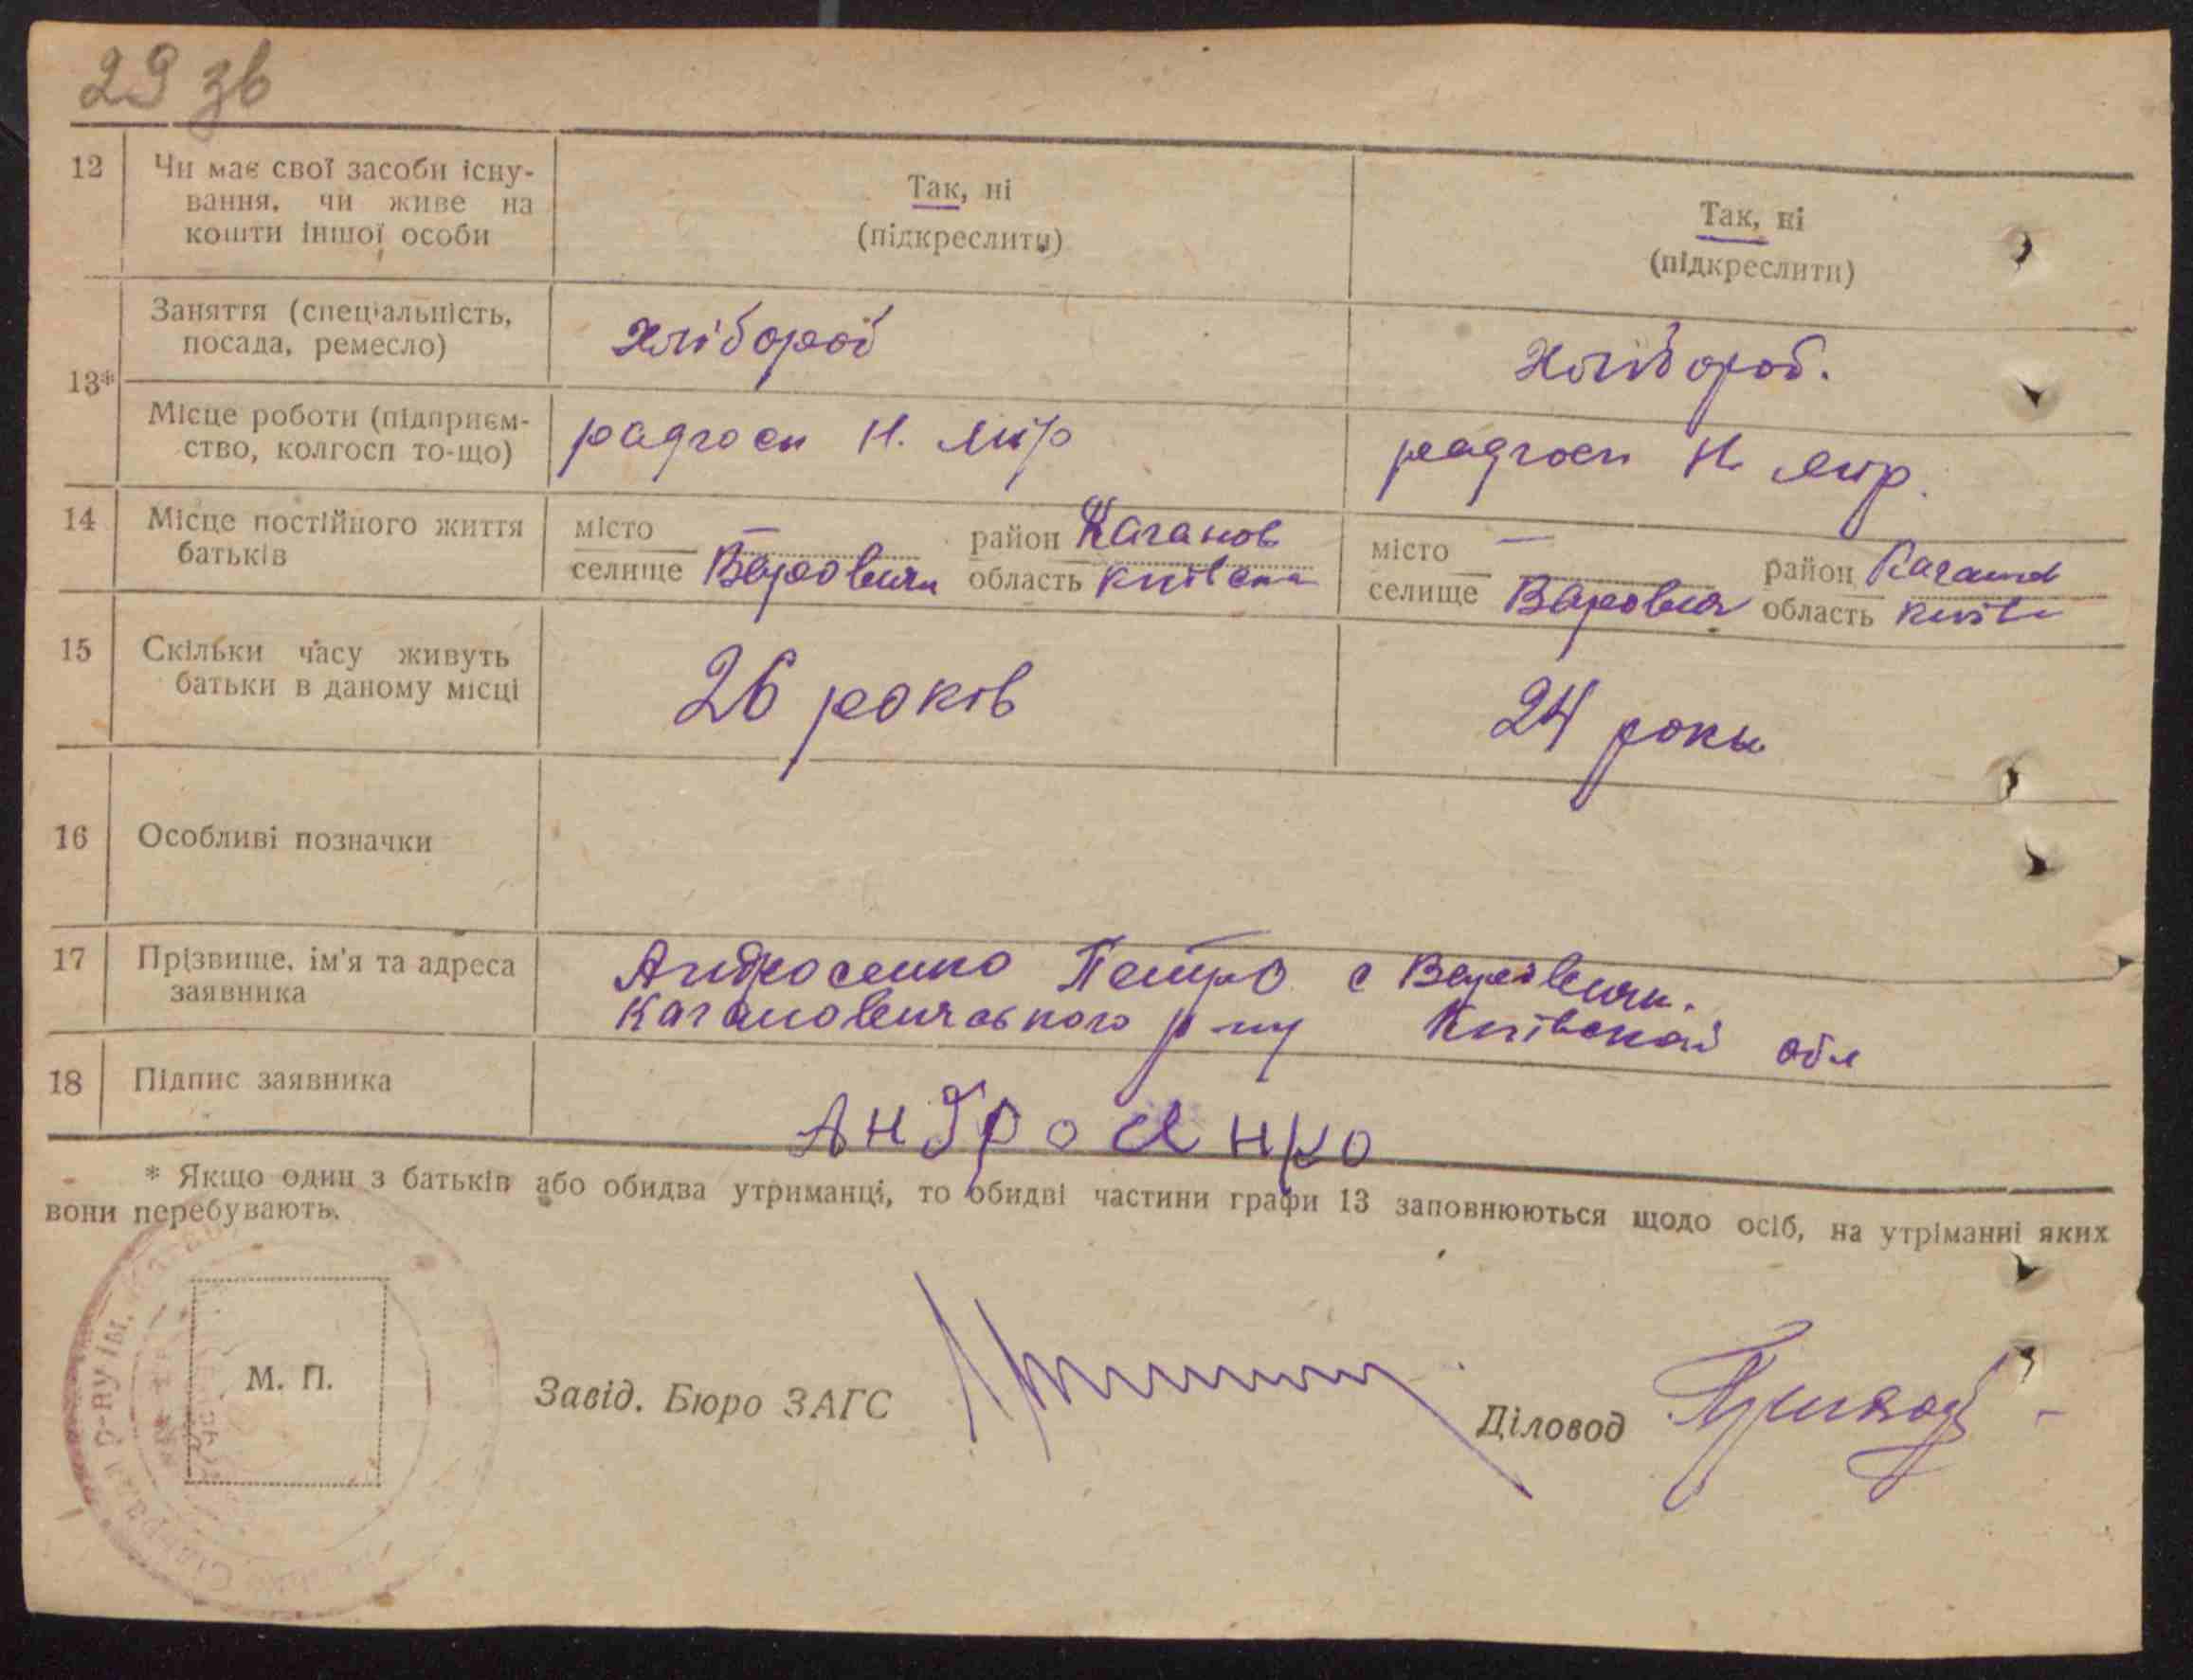 29 зв
12 Чи має свої засоби існу- Так, ні Так, ні
вання, чи живе на (підкреслити) (підкреслити)
кошти іншої особи
13* Заняття (спеціальність, хлібороб хлібороб.
посада, ремесло)
Місце роботи (підприєм- радгосп Н. мир радгосп Н. мир.
ство, колгосп то-що)
14 Місце постійного життя місто — район Каганов місто — район
батьків селище Варовичи область київска селище область
15 Скільки часу живуть 26 років 24 роки
батьки в даному місці
16 Особливі позначки
17 Прізвище, ім'я та адреса Андросенко Петро с Варовичи.
заявника Кагановичавского р-ну Київской обл
18 Підпис заявника Андросенко
* Якщо один з батьків або обидва утриманці, то обидві частини графи 13 заповнюються щодо осіб, на утріманні яких
вони перебувають.
М. П. Завід. Бюро ЗАГС Діловод
р-ну ім.